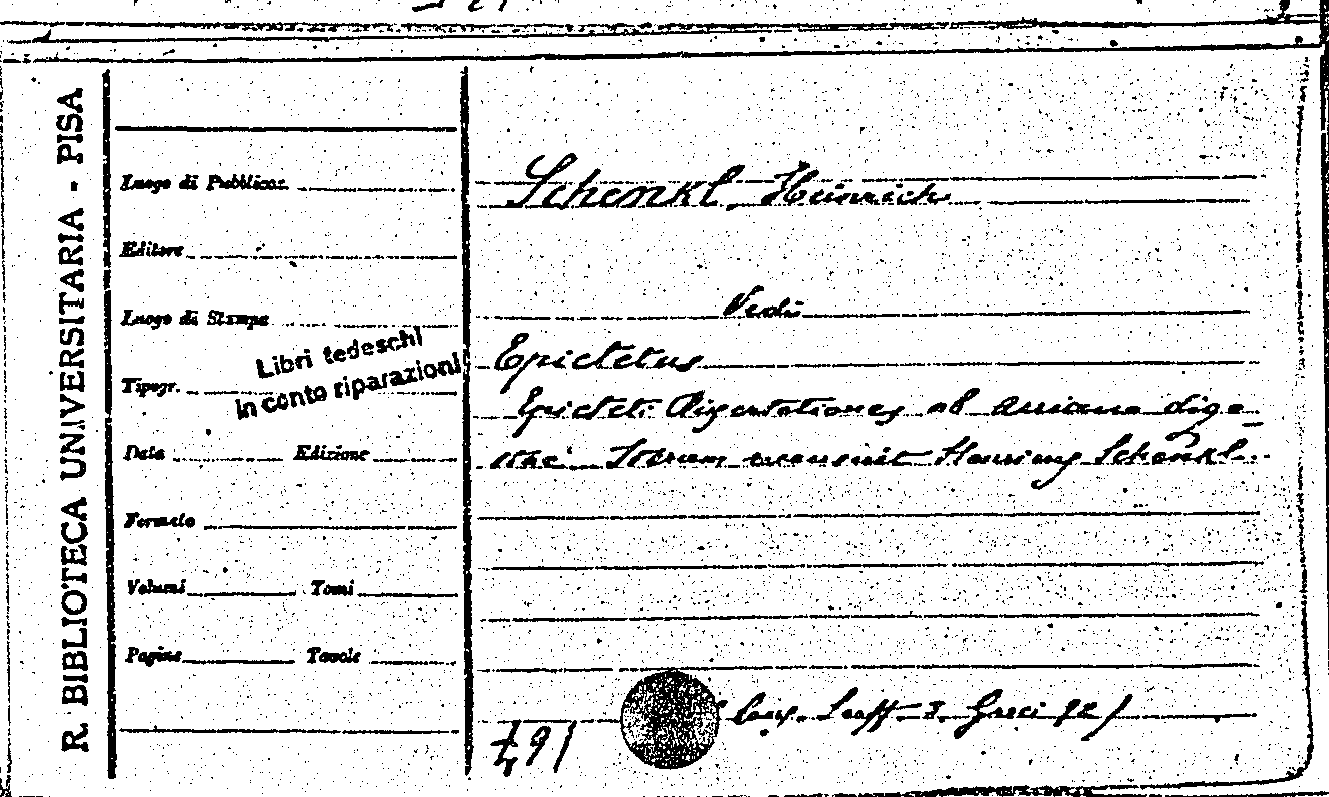 R. BIBLIOTECA UNIVERSITARIA - PISA
Luogo di Pubblicaz.
Editore
Luogo di Stampa
Libri tedeschi
in conto riparazioni
Tipogr.
Data Edizione
Formato
Volumi Tomi
Pagine Tavole
Schenkl, Heinrich
Vedi
Epictetus
Epicteti Dissertationes ab Arriano dige-
stae. Iterum recensuit Henricus Schenkl.
Greci